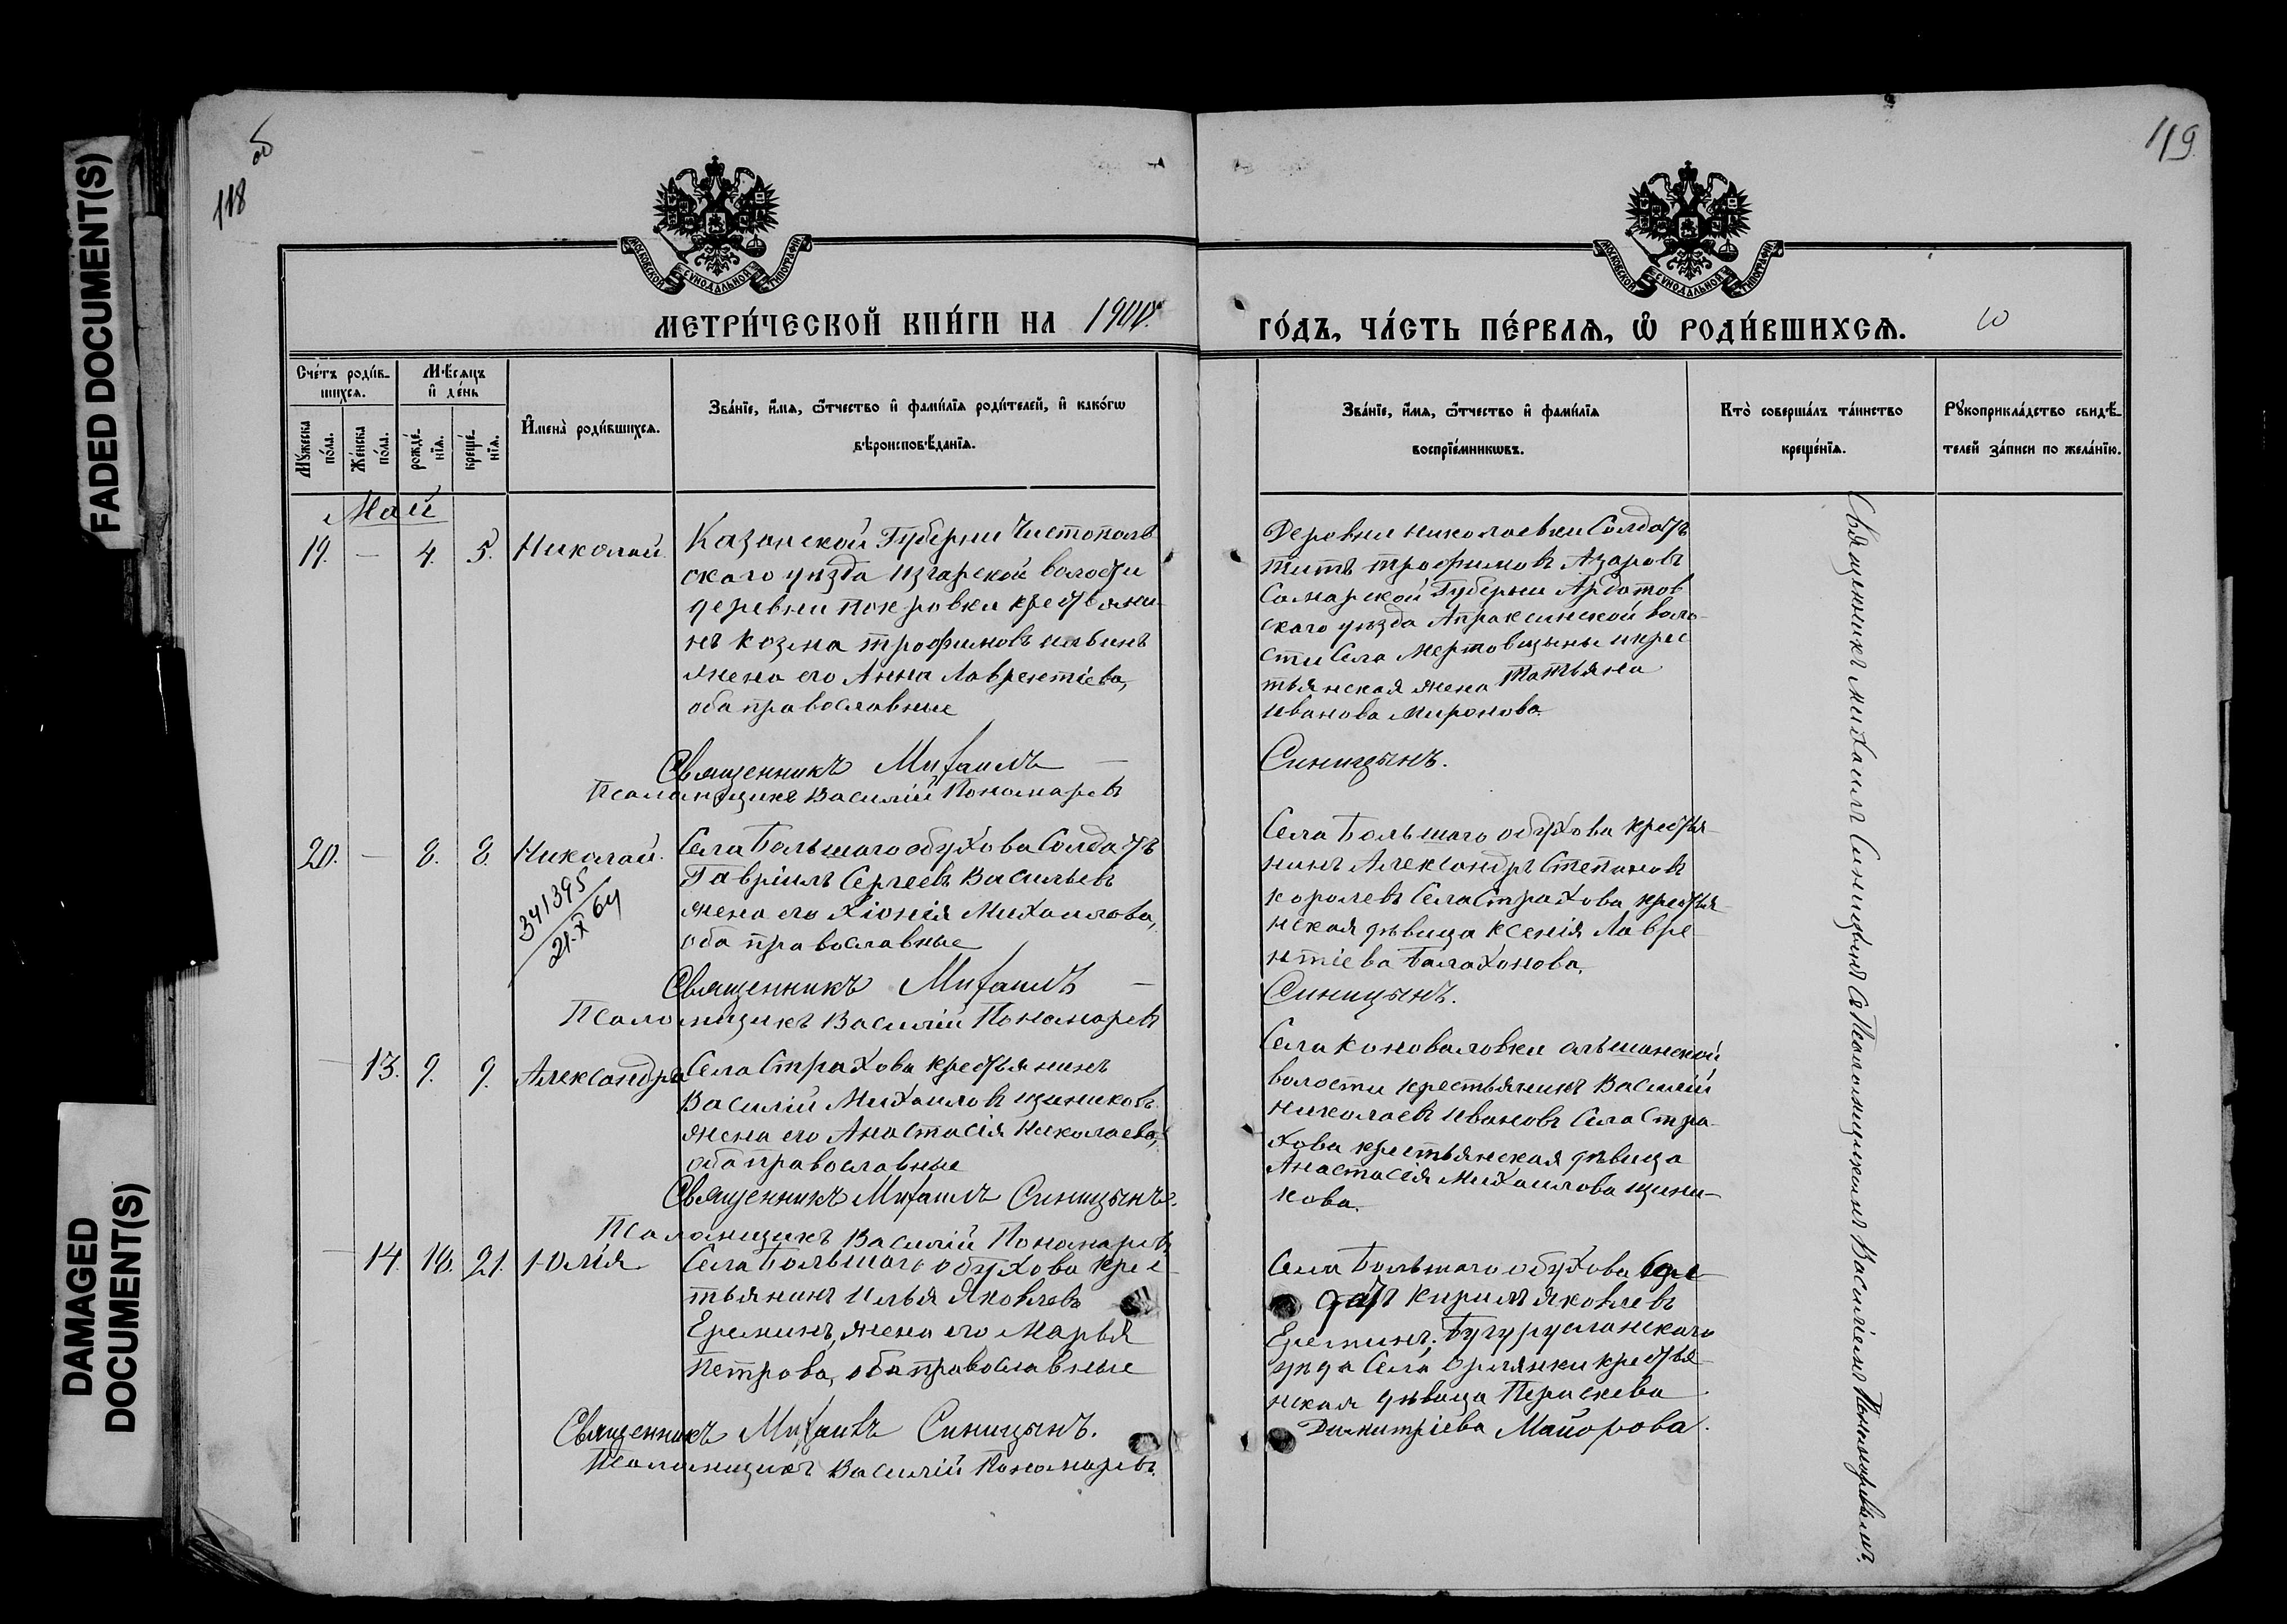 FADED DOCUMENT(S)
DAMAGED DOCUMENT(S)
118 об
119
МОСКОВСКОЙ СѴНОДАЛЬНОЙ ТИПОГРАФІИ
МОСКОВСКОЙ СѴНОДАЛЬНОЙ ТИПОГРАФІИ
МЕТРИ́ЧЕСКОЙ КНИ́ГИ НА 1900
ГО́ДЪ, ЧА́СТЬ ПЕ́РВАѦ, Ѡ҆ РОДИ́ВШИХСѦ.
Счётъ роди́в-
шихсѧ.
Мѣ́сѧцъ
и҆ де́нь
И҆мена̀ роди́вшихсѧ.
Зва́нїе, и҆́мѧ, ѻ҆́тчество и҆ фами́лїѧ роди́телей, и҆ како́гѡ
вѣроисповѣ́данїѧ.
Мꙋ́жеска по́ла.
Же́нска по́ла.
рожде́-нїѧ.
креще́-нїѧ.
Зва́нїе, и҆́мѧ, ѻ҆́тчество и҆ фами́лїѧ
воспрїе́мникѡвъ.
Кто̀ соверша́лъ та́инство
креще́нїѧ.
Рꙋкоприкла́дство свидѣ́-
телей за́писи по жела́нїю.
Май
19. — 4. 5. Николай.
Казанской Губерніи Чистополь
скаго уѣзда Изгарской волости
деревни Покровки крестьяни-
нъ Козма Трофимовъ Ильинъ
жена его Анна Лаврентіева,
оба православные
Священникъ Михаилъ —
Псаломщикъ Василій Пономаревъ
Деревни Николаевки Солдатъ
Титъ Трофимовъ Азаровъ
Самарской Губерніи Ардатов
скаго уѣзда Апраксинской воло-
сти Села Мертовщины крес
тьянская жена Татьяна
Иванова Миронова.
Синицынъ.
20. — 8. 8. Николай.
341395
21.X 64
Села Большаго обухова Солдатъ
Гавріилъ Сергеевъ Васильевъ
жена его Хіонія Михаилова,
оба православные
Священникъ Михаилъ —
Псаломщикъ Василій Пономаревъ
Села Большаго обухова крестья-
нинъ Александръ Степановъ
Королевъ Села Страхова крестья-
нская дѣвица Ксенія Лавре-
нтіева Балахонова.
Синицынъ.
— 13. 9. 9. Александра
Села Страхова крестьянинъ
Василій Михаиловъ Щиниковъ
жена его Анастасія Николаева,
оба православные
Священникъ Михаилъ Синицынъ.
Псаломщикъ Василій Пономаревъ
Села Коноваловки альшанской
волости крестьянинъ Василій
Николаевъ Ивановъ Села Стра-
хова крестьянская дѣвица
Анастасія Михаилова Щини-
кова.
— 14. 18. 21. Юлія
Села Большаго обухова крес-
тьянинъ Илья Яковлевъ
Ереминъ, жена его Марья
Петрова, оба православные
Священникъ Михаилъ Синицынъ.
Псаломщикъ Василій Пономаревъ.
Села Большаго обухова
Кирилъ Яковлевъ
Ереминъ; Бугурусланскаго
уѣзда Села Орлянки крестья-
нская дѣвица Пераскева
Димитріева Майорова.
Священникъ Михаилъ Синицынъ съ Псаломщикомъ Василіемъ Пономаревымъ.